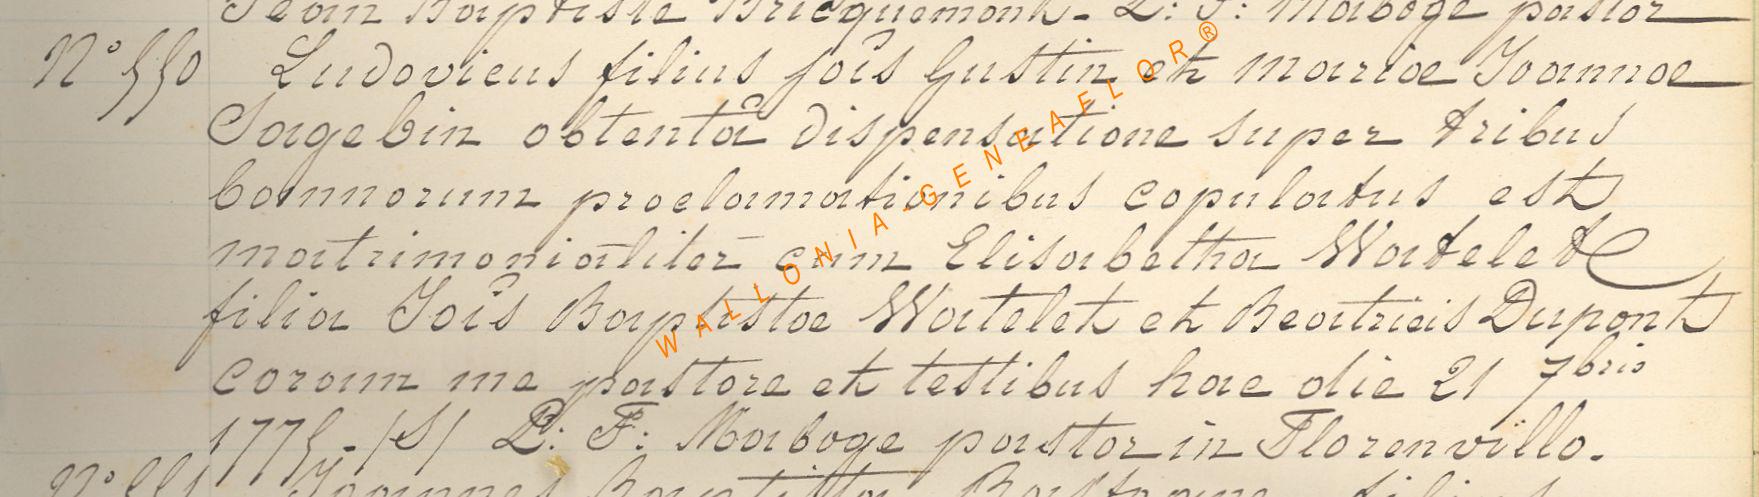 Jean Baptiste Bricquemont - L: F: Maboge pastor
N° 550 Ludovicus filius joîs Gustin et mariae Joannae
Sagebin obtentâ dispensatione super tribus
bannorum proclamationibus copulatus est
matrimonialiter cum Elisabetha Watelet
filia Joîs Baptistae Watelet et Beatricis Dupont
coram me pastore et testibus hac die 21 7bris
1775 - /S/ L: F: Maboge pastor in Florenvillo.
N° 551 Joannes Baptista filius
WALLONIA-GENEAFLOR®